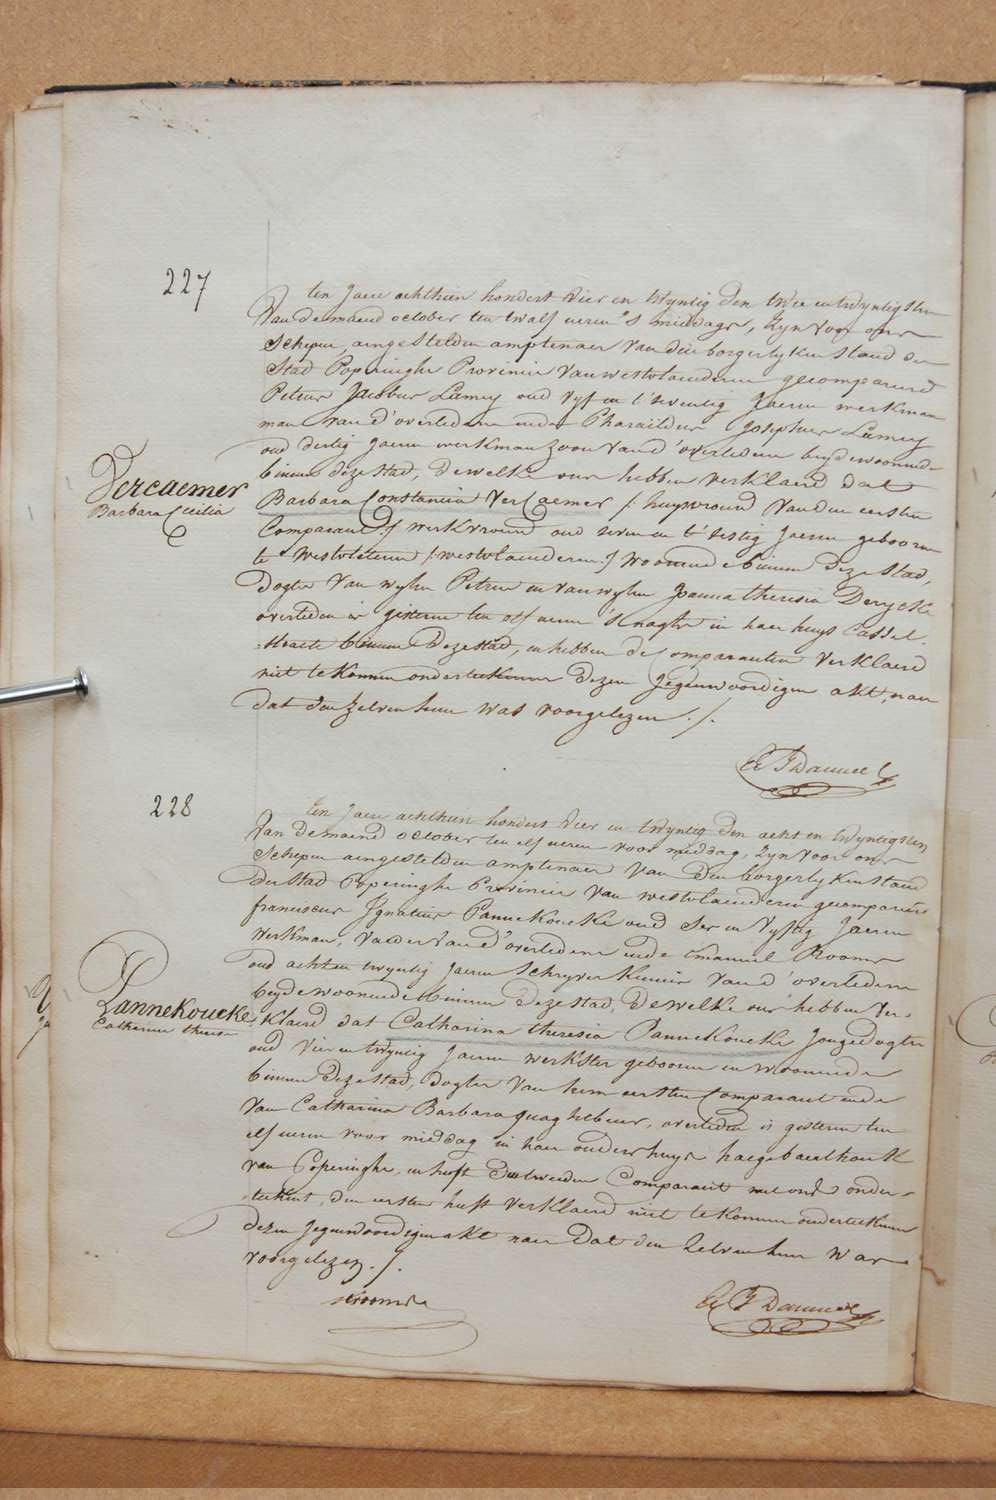 227
ten Jaere achthien hondert vier en twyntig den twee en twyntigsten
van de maend october ten twalf ueren 's middags, zyn voor ons
Schepen, aengestelden amptenaer van den borgerlyken stand der
Stad Poperinghe Provincie van westvlaenderen gecompareerd
Petrus Jacobus Lamey oud vyf en t'seventig Jaeren werkman
man van d'overledene ende Pharaildus Josephus Lamey
oud dertig Jaeren werkman zoon van d'overledene beyde woonende
binnen deze stad, dewelke ons hebben verklaerd dat
Vercaemer
Barbara Cecilia
Barbara Constantia VerCaemer /: huysvrouw van den eersten
Comparant :/ werkvrouw oud seven en t'sestig Jaeren gebooren
te westvleteren /: westvlaenderen :/ woonende binnen deze stad,
dogter van wylen Petrus en van wylen Joanna theresia Derycke
overleden is gisteren ten elf ueren 's nagts in haer huys Cassel-
straete binnen deze stad, en hebben de Comparanten verklaerd
niet te konnen onderteekenen dezen Jegenwoordigen akt, naer
dat den zelven hun was voorgelezen ./.
228
Ten Jaere achthien hondert vier en twyntig den acht en twyntigsten
van de maend october ten elf ueren voor middag, zyn voor ons
Schepen aengestelden amptenaer van den borgerlyken stand
der stad Poperinghe Provincie van westvlaenderen gecompareerd
franciscus Ignatius Pannekoucke oud ses en vyftig Jaeren
werkman, vader van d'overledene ende Emanuel Rooms
oud acht en twyntig Jaeren Schryver kennis van d'overledene
beyde woonende binnen deze stad, dewelke ons hebben ver-
Pannekoucke
Catharina theresia
klaerd dat Catharina theresia Pannekoucke Jongedogter
oud vier en twyntig Jaeren werkster gebooren en woonende
binnen deze stad, dogter van hem eersten Comparant ende
van Catharina Barbara quaghebeur, overleden is gisteren ten
elf ueren voor middag in haer ouders huys haegebaerthouk
van Poperinghe, en heeft den tweeden Comparant met ons onder-
teekent, den eersten heeft verklaerd niet te konnen onderteekenen
dezen Jegenwoordigen akt naer dat den zelven hun was
voorgelezen ./.